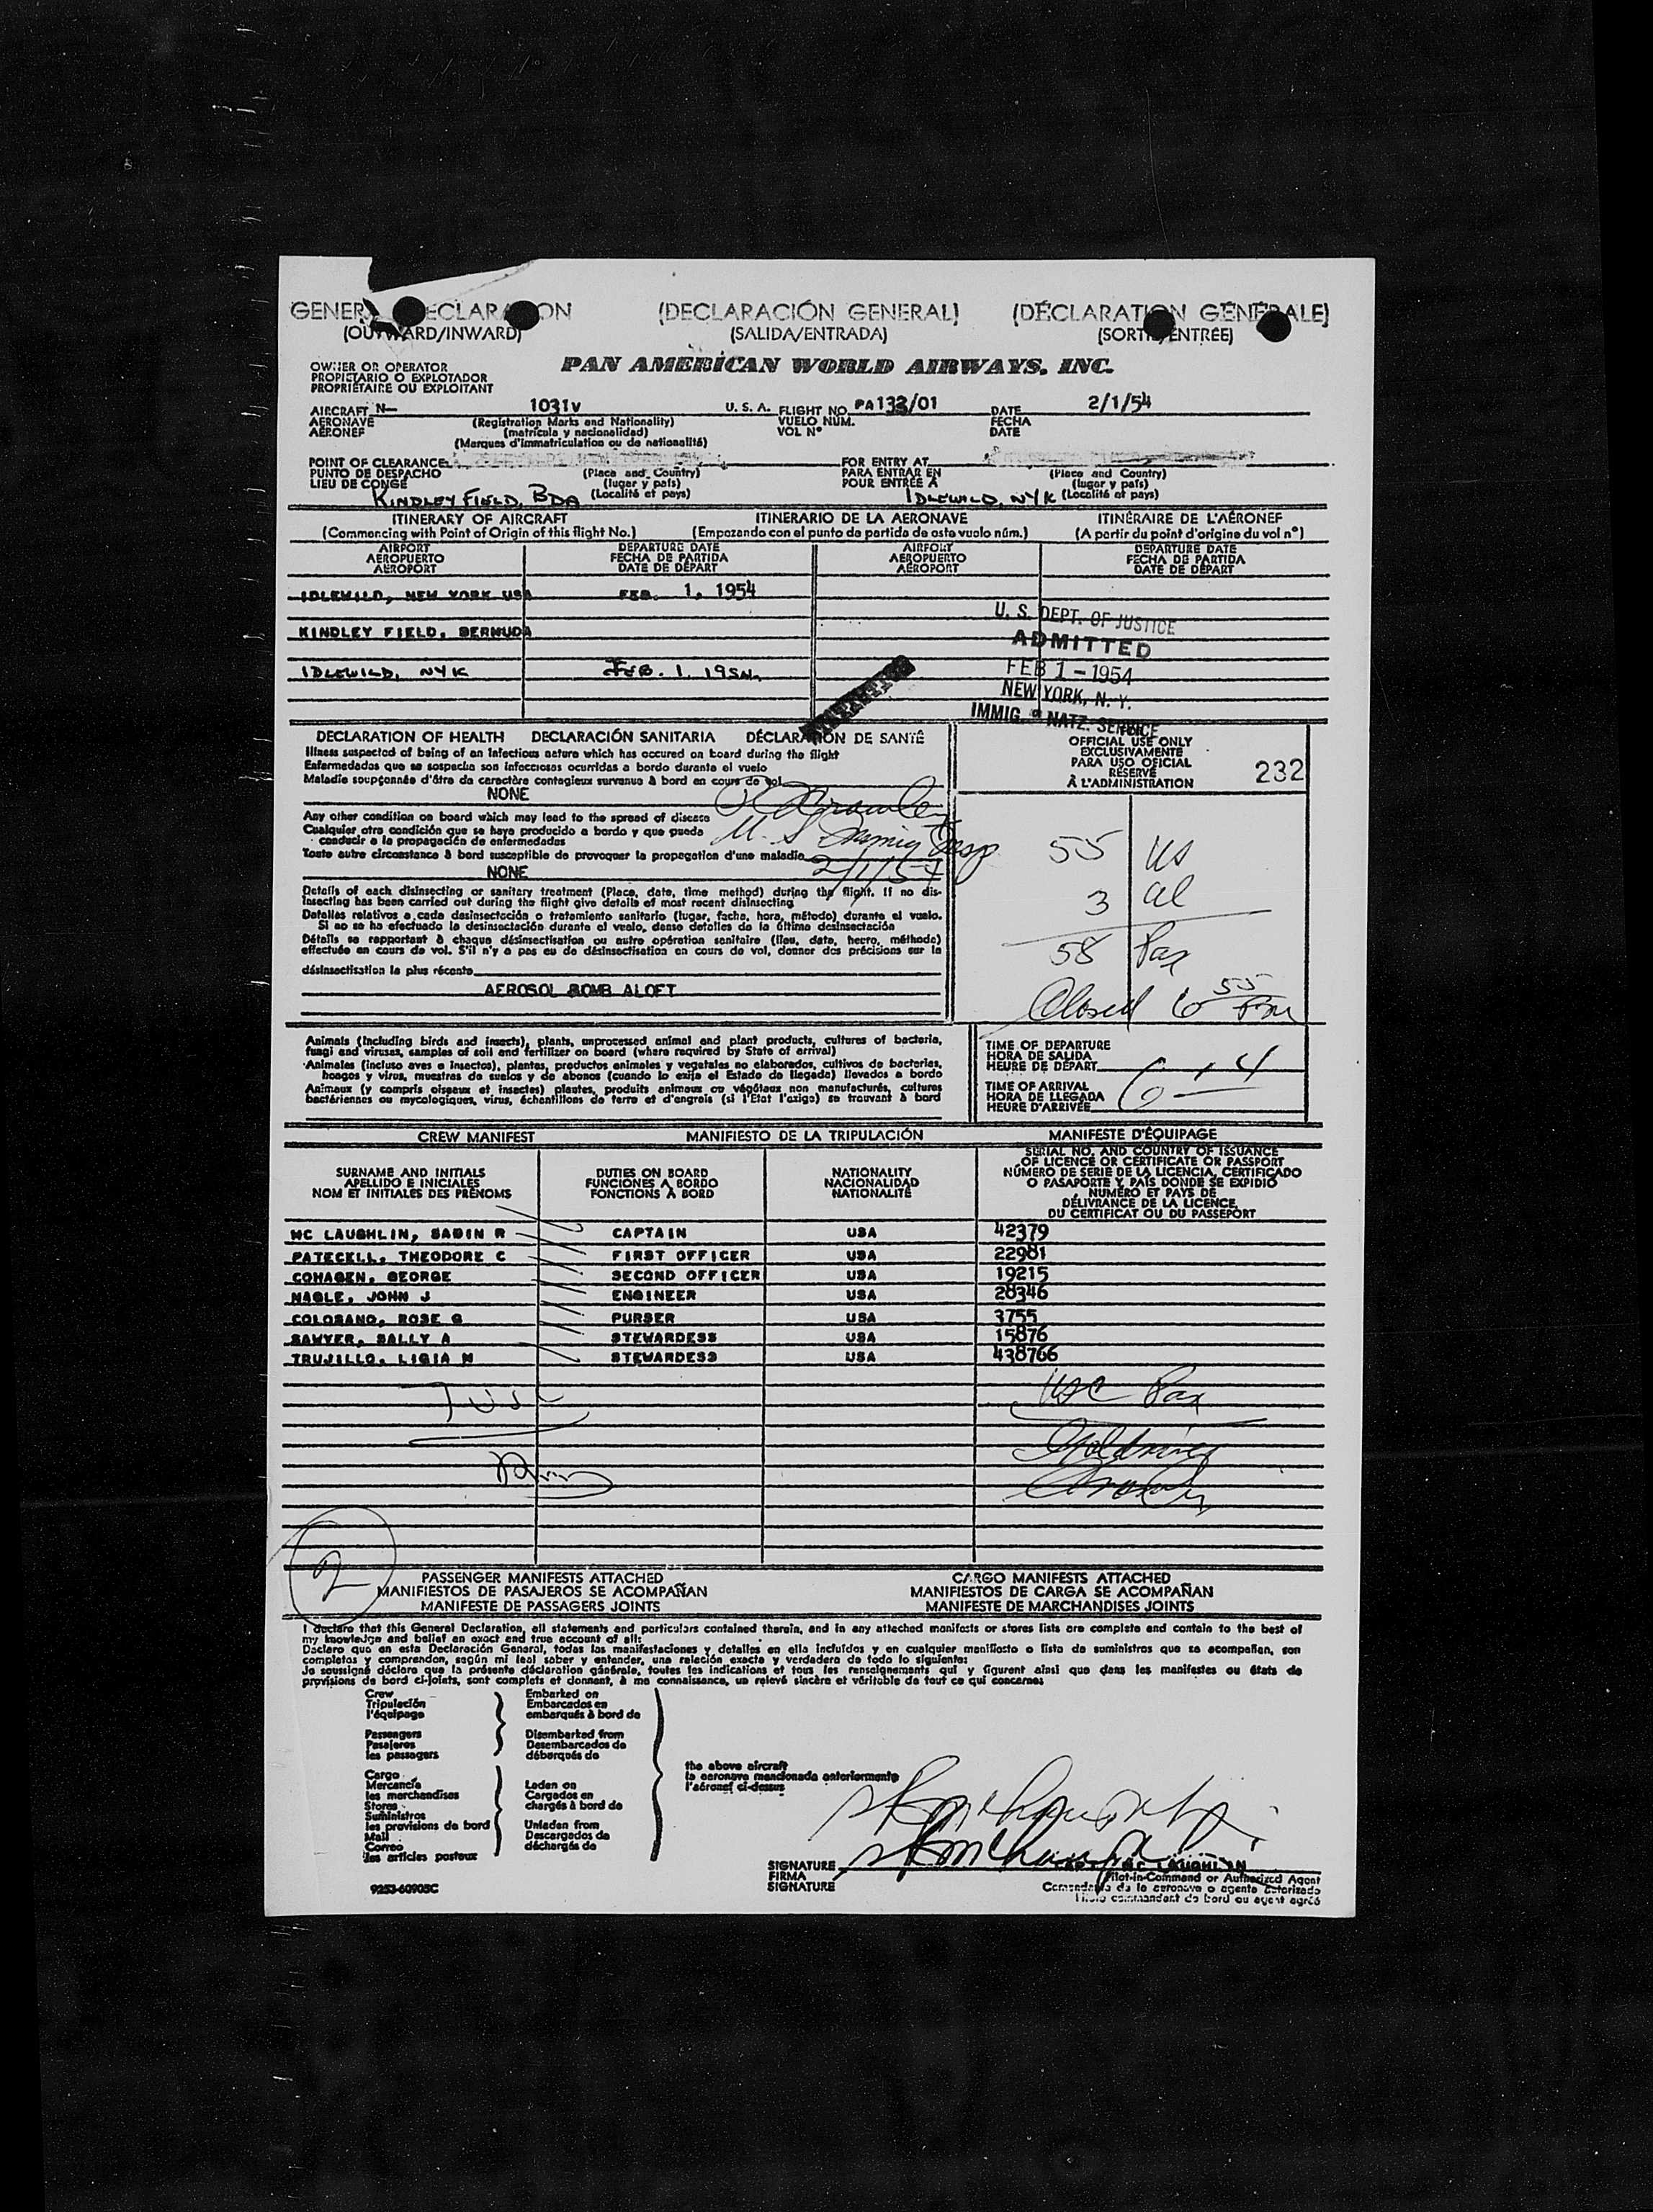 GENER ECLARA ON (DECLARACIÓN GENERAL) (DÉCLARATION GÉNÉRALE)
(OUTWARD/INWARD) (SALIDA/ENTRADA) (SORTIE/ENTRÉE)
OWNER OR OPERATOR
PROPIETARIO O EXPLOTADOR
PROPRIÉTAIRE OU EXPLOITANT
PAN AMERICAN WORLD AIRWAYS, INC.
AIRCRAFT N— 1031V U. S. A. FLIGHT NO. PA 133/01 DATE 2/1/54
AERONAVE (Registration Marks and Nationality) VUELO NÚM. FECHA
AÉRONEF (matrícula y nacionalidad) VOL N° DATE
(Marques d'immatriculation ou de nationalité)
POINT OF CLEARANCE FOR ENTRY AT
PUNTO DE DESPACHO (Place and Country) PARA ENTRAR EN (Place and Country)
LIEU DE CONGÉ (lugar y país) POUR ENTRÉE À (lugar y país)
KINDLEY FIELD, BDA (Localité et pays) IDLEWILD, NYK (Localité et pays)
ITINERARY OF AIRCRAFT ITINERARIO DE LA AERONAVE ITINÉRAIRE DE L'AÉRONEF
(Commencing with Point of Origin of this flight No.) (Empezando con el punto de partida de este vuelo núm.) (A partir du point d'origine du vol n°)
AIRPORT DEPARTURE DATE AIRPORT DEPARTURE DATE
AEROPUERTO FECHA DE PARTIDA AEROPUERTO FECHA DE PARTIDA
AÉROPORT DATE DE DÉPART AÉROPORT DATE DE DÉPART
IDLEWILD, NEW YORK USA FEB. 1, 1954
KINDLEY FIELD, BERMUDA
IDLEWILD, NYK FEB. 1, 1954
U. S. DEPT. OF JUSTICE
ADMITTED
FEB 1 - 1954
NEW YORK, N. Y.
IMMIG. & NATZ. SERVICE
DECLARATION OF HEALTH DECLARACIÓN SANITARIA DÉCLARATION DE SANTÉ
Illness suspected of being of an infectious nature which has occured on board during the flight
Enfermedades que se sospecha son infecciosas ocurridas a bordo durante el vuelo
Maladie soupçonnée d'être de caractère contagieux survenue à bord en cours de vol
NONE
Any other condition on board which may lead to the spread of disease
Cualquier otra condición que se haya producido a bordo y que pueda
conducir a la propagación de enfermedades
Toute autre circonstance à bord susceptible de provoquer la propagation d'une maladie
NONE
U. S. Immig Insp
2/1/54
Details of each disinsecting or sanitary treatment (Place, date, time method) during the flight. If no dis-
insecting has been carried out during the flight give details of most recent disinsecting
Detalles relativos a cada desinsectación o tratamiento sanitario (lugar, fecha, hora, método) durante el vuelo.
Si no se ha efectuado la desinsectación durante el vuelo, dense detalles de la última desinsectación
Détails se rapportant à chaque désinsectisation ou autre opération sanitaire (lieu, date, heure, méthode)
effectuée en cours de vol. S'il n'y a pas eu de désinsectisation en cours de vol, donner des précisions sur la
désinsectisation la plus récente
AEROSOL BOMB ALOFT
OFFICIAL USE ONLY
EXCLUSIVAMENTE
PARA USO OFICIAL
RÉSERVÉ
À L'ADMINISTRATION
232
55 US
3 al
58 Pax
Closed 6 55 PM
Animals (including birds and insects), plants, unprocessed animal and plant products, cultures of bacteria,
fungi and viruses, samples of soil and fertilizer on board (where required by State of arrival)
Animales (incluso aves e insectos), plantas, productos animales y vegetales no elaborados, cultivos de bacterias,
hongos y virus, muestras de suelos y de abonos (cuando lo exija el Estado de llegada) llevados a bordo
Animaux (y compris oiseaux et insectes) plantes, produits animaux ou végétaux non manufacturés, cultures
bactériennes ou mycologiques, virus, échantillons de terre et d'engrais (si l'État l'exige) se trouvant à bord
TIME OF DEPARTURE
HORA DE SALIDA
HEURE DE DÉPART
TIME OF ARRIVAL
HORA DE LLEGADA
HEURE D'ARRIVÉE
CREW MANIFEST MANIFIESTO DE LA TRIPULACIÓN MANIFESTE D'ÉQUIPAGE
SURNAME AND INITIALS
APELLIDO E INICIALES
NOM ET INITIALES DES PRÉNOMS
DUTIES ON BOARD
FUNCIONES A BORDO
FONCTIONS À BORD
NATIONALITY
NACIONALIDAD
NATIONALITÉ
SERIAL NO. AND COUNTRY OF ISSUANCE
OF LICENCE OR CERTIFICATE OR PASSPORT
NÚMERO DE SERIE DE LA LICENCIA, CERTIFICADO
O PASAPORTE Y PAÍS DONDE SE EXPIDIÓ
NUMÉRO ET PAYS DE
DÉLIVRANCE DE LA LICENCE,
DU CERTIFICAT OU DU PASSEPORT
MC LAUGHLIN, SABIN R CAPTAIN USA 42379
PATECELL, THEODORE C FIRST OFFICER USA 22981
COHAGEN, GEORGE SECOND OFFICER USA 19215
NAGLE, JOHN J ENGINEER USA 28346
COLOSANO, ROSE G PURSER USA 3755
SAWYER, SALLY A STEWARDESS USA 15876
TRUJILLO, LIGIA M STEWARDESS USA 438766
USC Pax
2
PASSENGER MANIFESTS ATTACHED CARGO MANIFESTS ATTACHED
MANIFIESTOS DE PASAJEROS SE ACOMPAÑAN MANIFIESTOS DE CARGA SE ACOMPAÑAN
MANIFESTE DE PASSAGERS JOINTS MANIFESTE DE MARCHANDISES JOINTS
I declare that this General Declaration, all statements and particulars contained therein, and in any attached manifests or stores lists are complete and contain to the best of
my knowledge and belief an exact and true account of all:
Declaro que en esta Declaración General, todas las manifestaciones y detalles en ella incluídos y en cualquier manifiesto o lista de suministros que se acompañan, son
completos y comprenden, según mi leal saber y entender, una relación exacta y verdadera de todo lo siguiente:
Je soussigné déclare que la présente déclaration générale, toutes les indications et tous les renseignements qui y figurent ainsi que dans les manifestes ou états de
provisions de bord ci-joints, sont complets et donnent, à ma connaissance, un relevé sincère et véritable de tout ce qui concerne:
Crew Embarked on
Tripulación Embarcados en
l'équipage embarqués à bord de
Passengers Disembarked from
Pasajeros Desembarcados de
les passagers débarqués de
the above aircraft
la aeronave mencionada anteriormente
l'aéronef ci-dessus
Cargo
Mercancía Laden on
les marchandises Cargados en
Stores chargés à bord de
Suministros
les provisions de bord Unladen from
Mail Descargados de
Correo déchargés de
les articles postaux
SIGNATURE CAPT. MC LAUGHLIN
FIRMA Pilot-in-Command or Authorized Agent
SIGNATURE Comandante de la aeronave o agente autorizado
Pilote commandant de bord ou agent agréé
9253-60905C